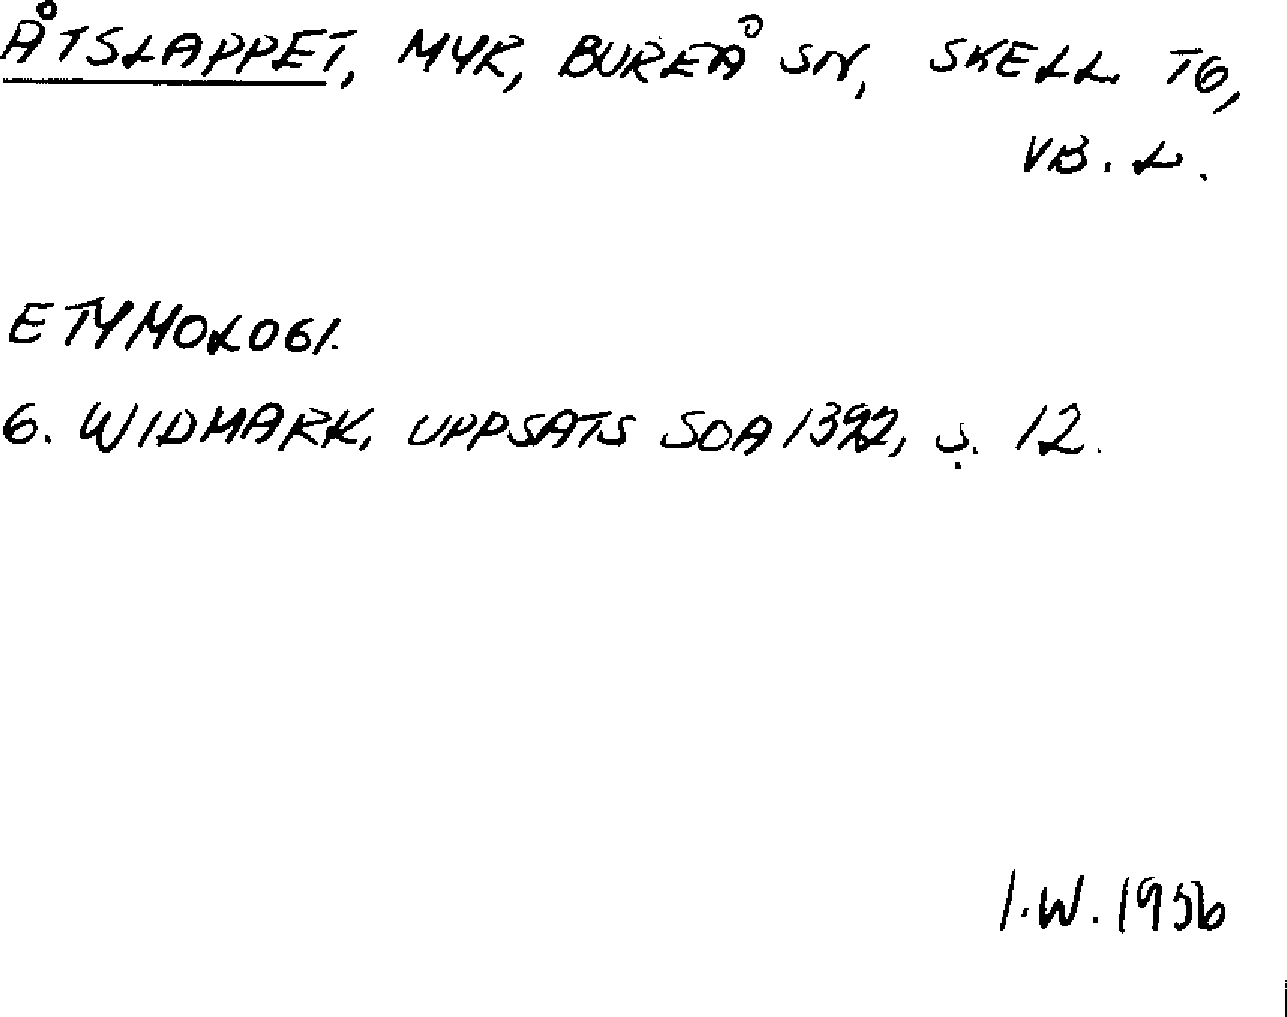 ÅTSLAPPET, MYR, BUREÅ SN, SKELL. TG,
VB. L.
ETYMOLOGI.
G. WIDMARK, UPPSATS SOA 1392, S. 12.
I.W. 1956